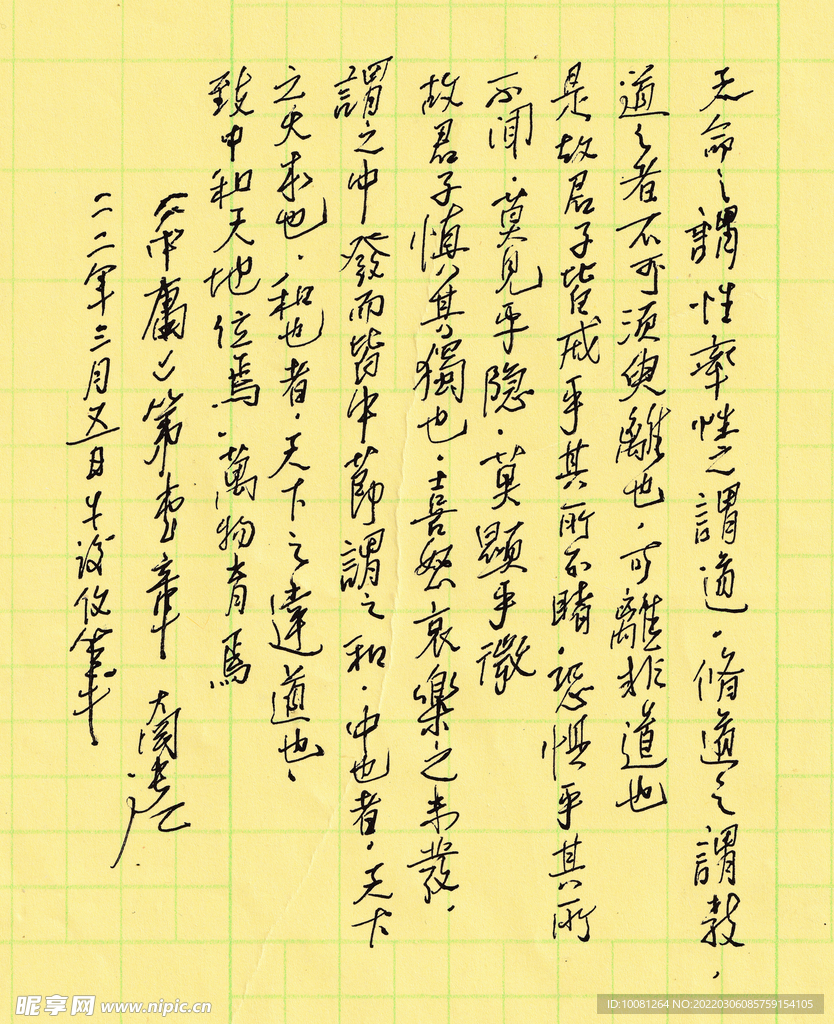 天命之謂性率性之謂道。脩道之謂教，
道之者不可須臾離也，可離非道也
是故君子皆戒乎其所不睹。恐懼乎其所
不聞。莫見乎隐。莫顯乎微
故君子慎其獨也。喜怒哀樂之未發，
謂之中發而皆中節謂之和。中也者，天下
之大本也。和也者。天下之達道也、
致中和天地位焉。萬物育焉
中庸 第壹章
二〇二二年三月五日
昵享网 www.nipic.cn
ID:10081264 NO:20220306085759154105